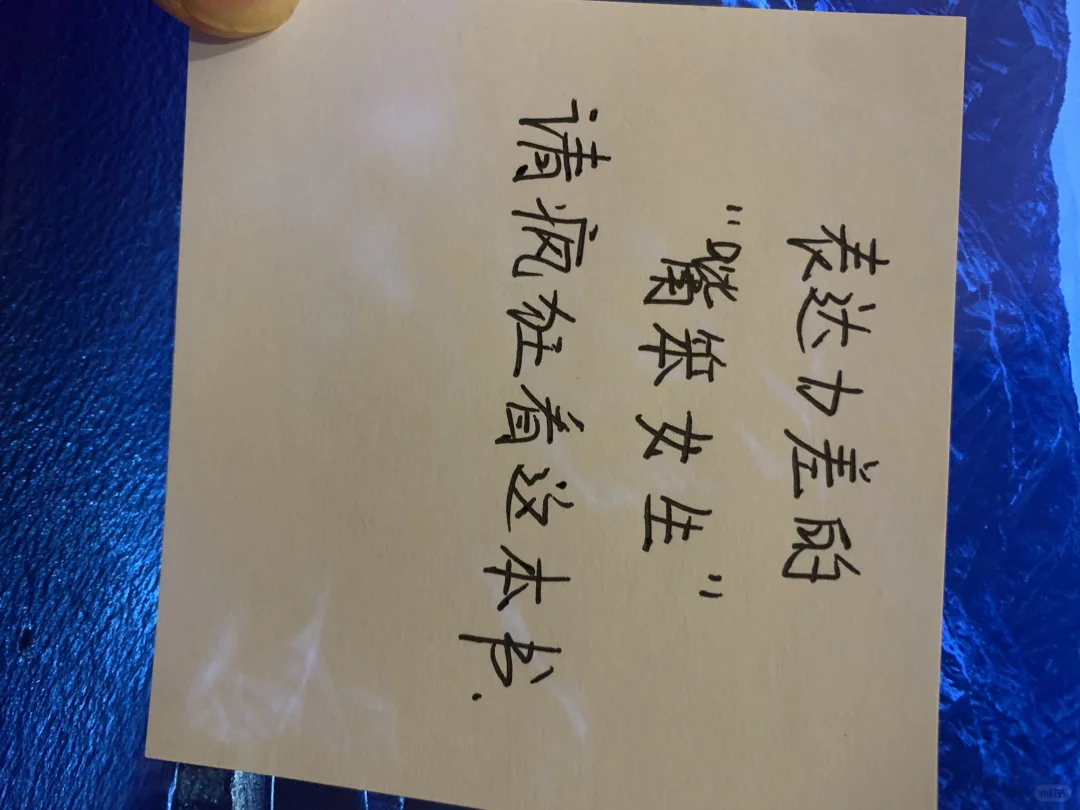 表达力差的
"嘴笨女生"
请疯狂看这本书.
小红书